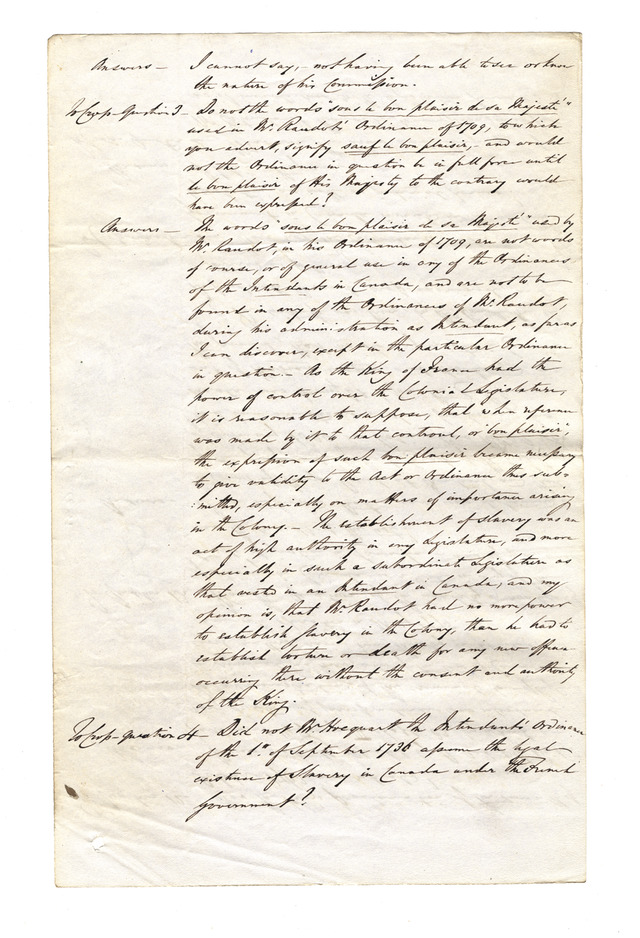 Answers — I cannot say, — not having been able to see or know
the nature of his Commission.
To Crop-Question 3 — Do not the words "sous le bon plaisir de sa Majesté"
used in Mr. Raudot's Ordinance of 1709, to which
you advert, signify sauf le bon plaisir, — and would
not the Ordinance in question be in full force until
le bon plaisir of His Majesty to the contrary would
have been expressed?
Answers — The words "sous le bon plaisir de sa Majesté" used by
Mr. Raudot, in his Ordinance of 1709, are not words
of course, or of general use in any of the Ordinances
of the Intendants in Canada, and are not to be
found in any of the Ordinances of Mr. Raudot,
during his administration as Intendant, as far as
I can discover, except in the particular Ordinance
in question. — As the King of France had the
power of control over the Colonial Legislature,
it is reasonable to suppose, that when reference
was made by it to that controul, or bon plaisir,
the expression of such bon plaisir became necessary
to give validity to the Act or Ordinance thus sub-
:mitted, especially on matters of importance arising
in the Colony. — The establishment of slavery was an
act of high authority in any Legislature, and more
especially in such a subordinate Legislature as
that vested in an Intendant in Canada, and my
opinion is, that Mr. Raudot had no more power
to establish slavery in the Colony, than he had to
establish torture or death for any new offence
occurring there without the consent and authority
of the King.
To Crop-question 4 — Did not Mr. Hocquart the Intendant's Ordinance
of the 1st. of September 1736 assume the legal
existence of Slavery in Canada under the French
Government?